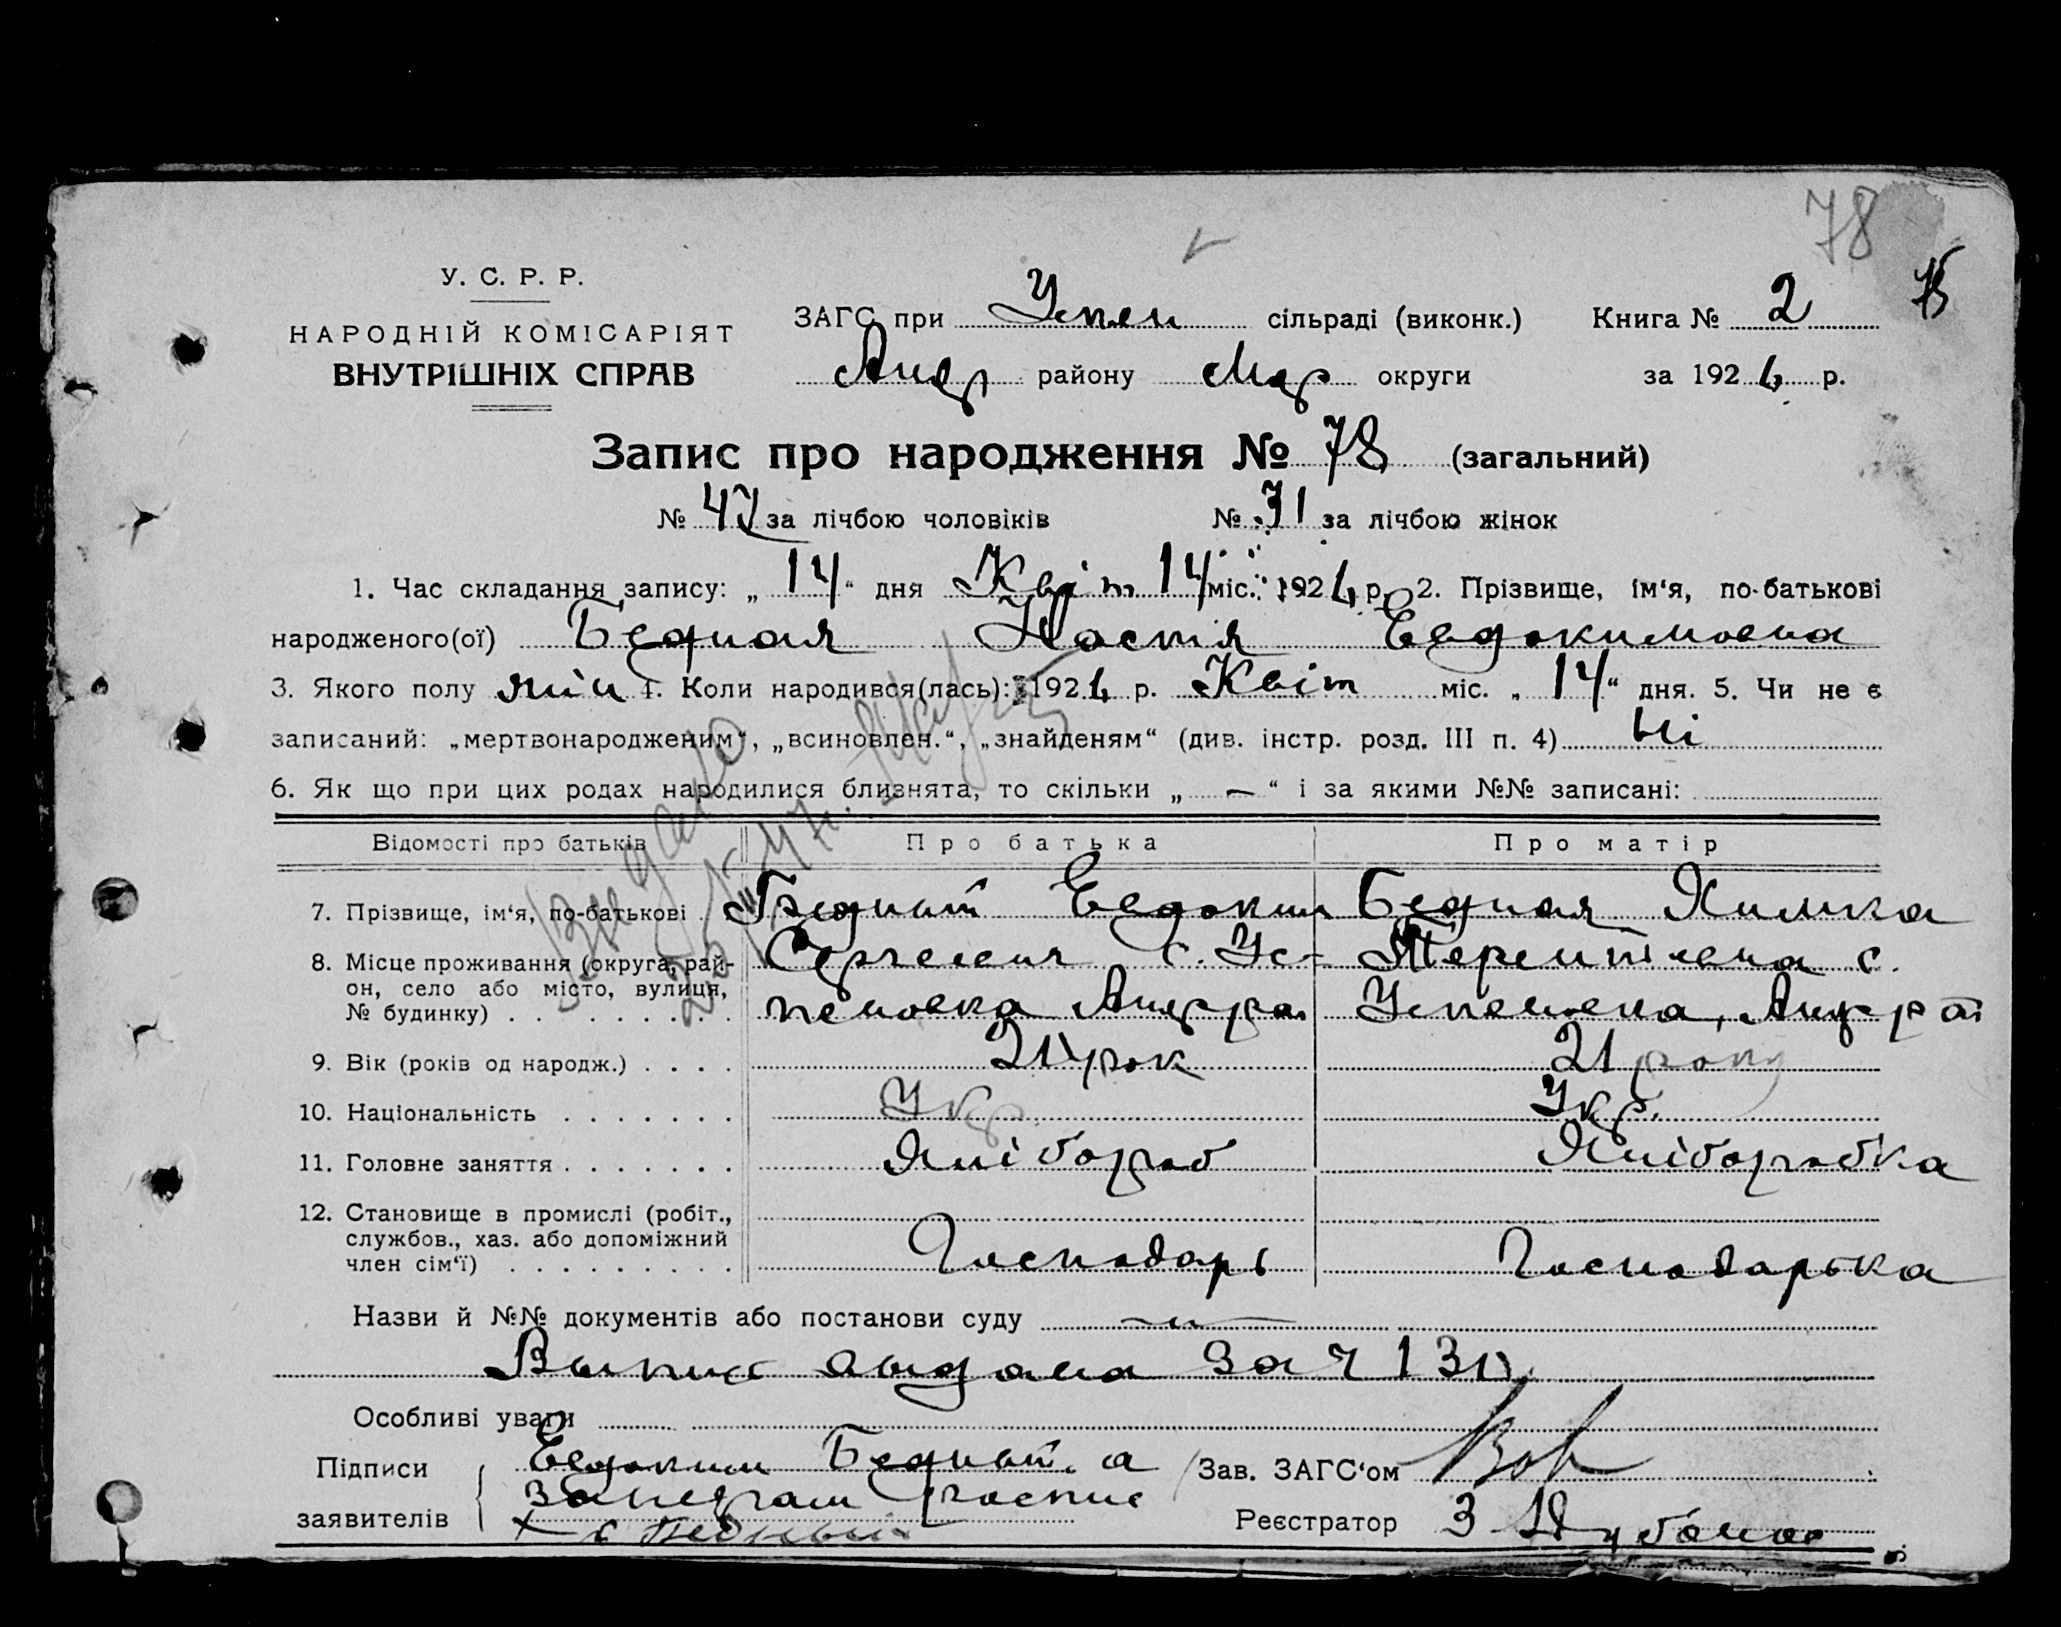 78
У. С. Р. Р.
НАРОДНІЙ КОМІСАРІЯТ
ВНУТРІШНІХ СПРАВ
ЗАГС при Успен сільраді (виконк.) Книга № 2
Андр району Мар округи за 192 р.
Запис про народження № 78 (загальний)
№ 47 за лічбою чоловіків № 31 за лічбою жінок
1. Час складання запису: „ 14 “ дня Квіт 14 міс. 192 р. 2. Прізвище, ім‘я, по-батькові
народженого(ої) Бедная Настя Евдокимовна
3. Якого полу жін 4. Коли народився(лась): 192 р. Квіт міс. „ 14 “ дня. 5. Чи не є
записаний: „мертвонародженим“, „всиновлен.“, „знайденям“ (див. інстр. розд. III п. 4) Ні
6. Як що при цих родах народилися близнята, то скільки „ — “ і за якими №№ записані:
Відомості про батьків Про батька Про матір
7. Прізвище, ім‘я, по-батькові . Бедный Евдоким Бедная Химка
8. Місце проживання (округа, рай- Сергеевич с. Ус- Терентіевна с.
он, село або місто, вулиця, пеновка Андрра Успеновка, Андр ра
№ будинку) . . . . . . . . .
9. Вік (років од народж.) . . . . 21 рок 21 року
10. Національність . . . . . . . Укр Укр.
11. Головне заняття . . . . . . . Хлібороб Хліборобка
12. Становище в промислі (робіт.,
службов., хаз. або допоміжний
член сім‘ї) . . . . . . . . . Господарь Господарька
Назви й №№ документів або постанови суду
Выпис выдана за ч 13
Особливі уваги
Підписи Евдоким Бедный а Зав. ЗАГС‘ом
заявителів роспис Реєстратор З
Бедный
Видано